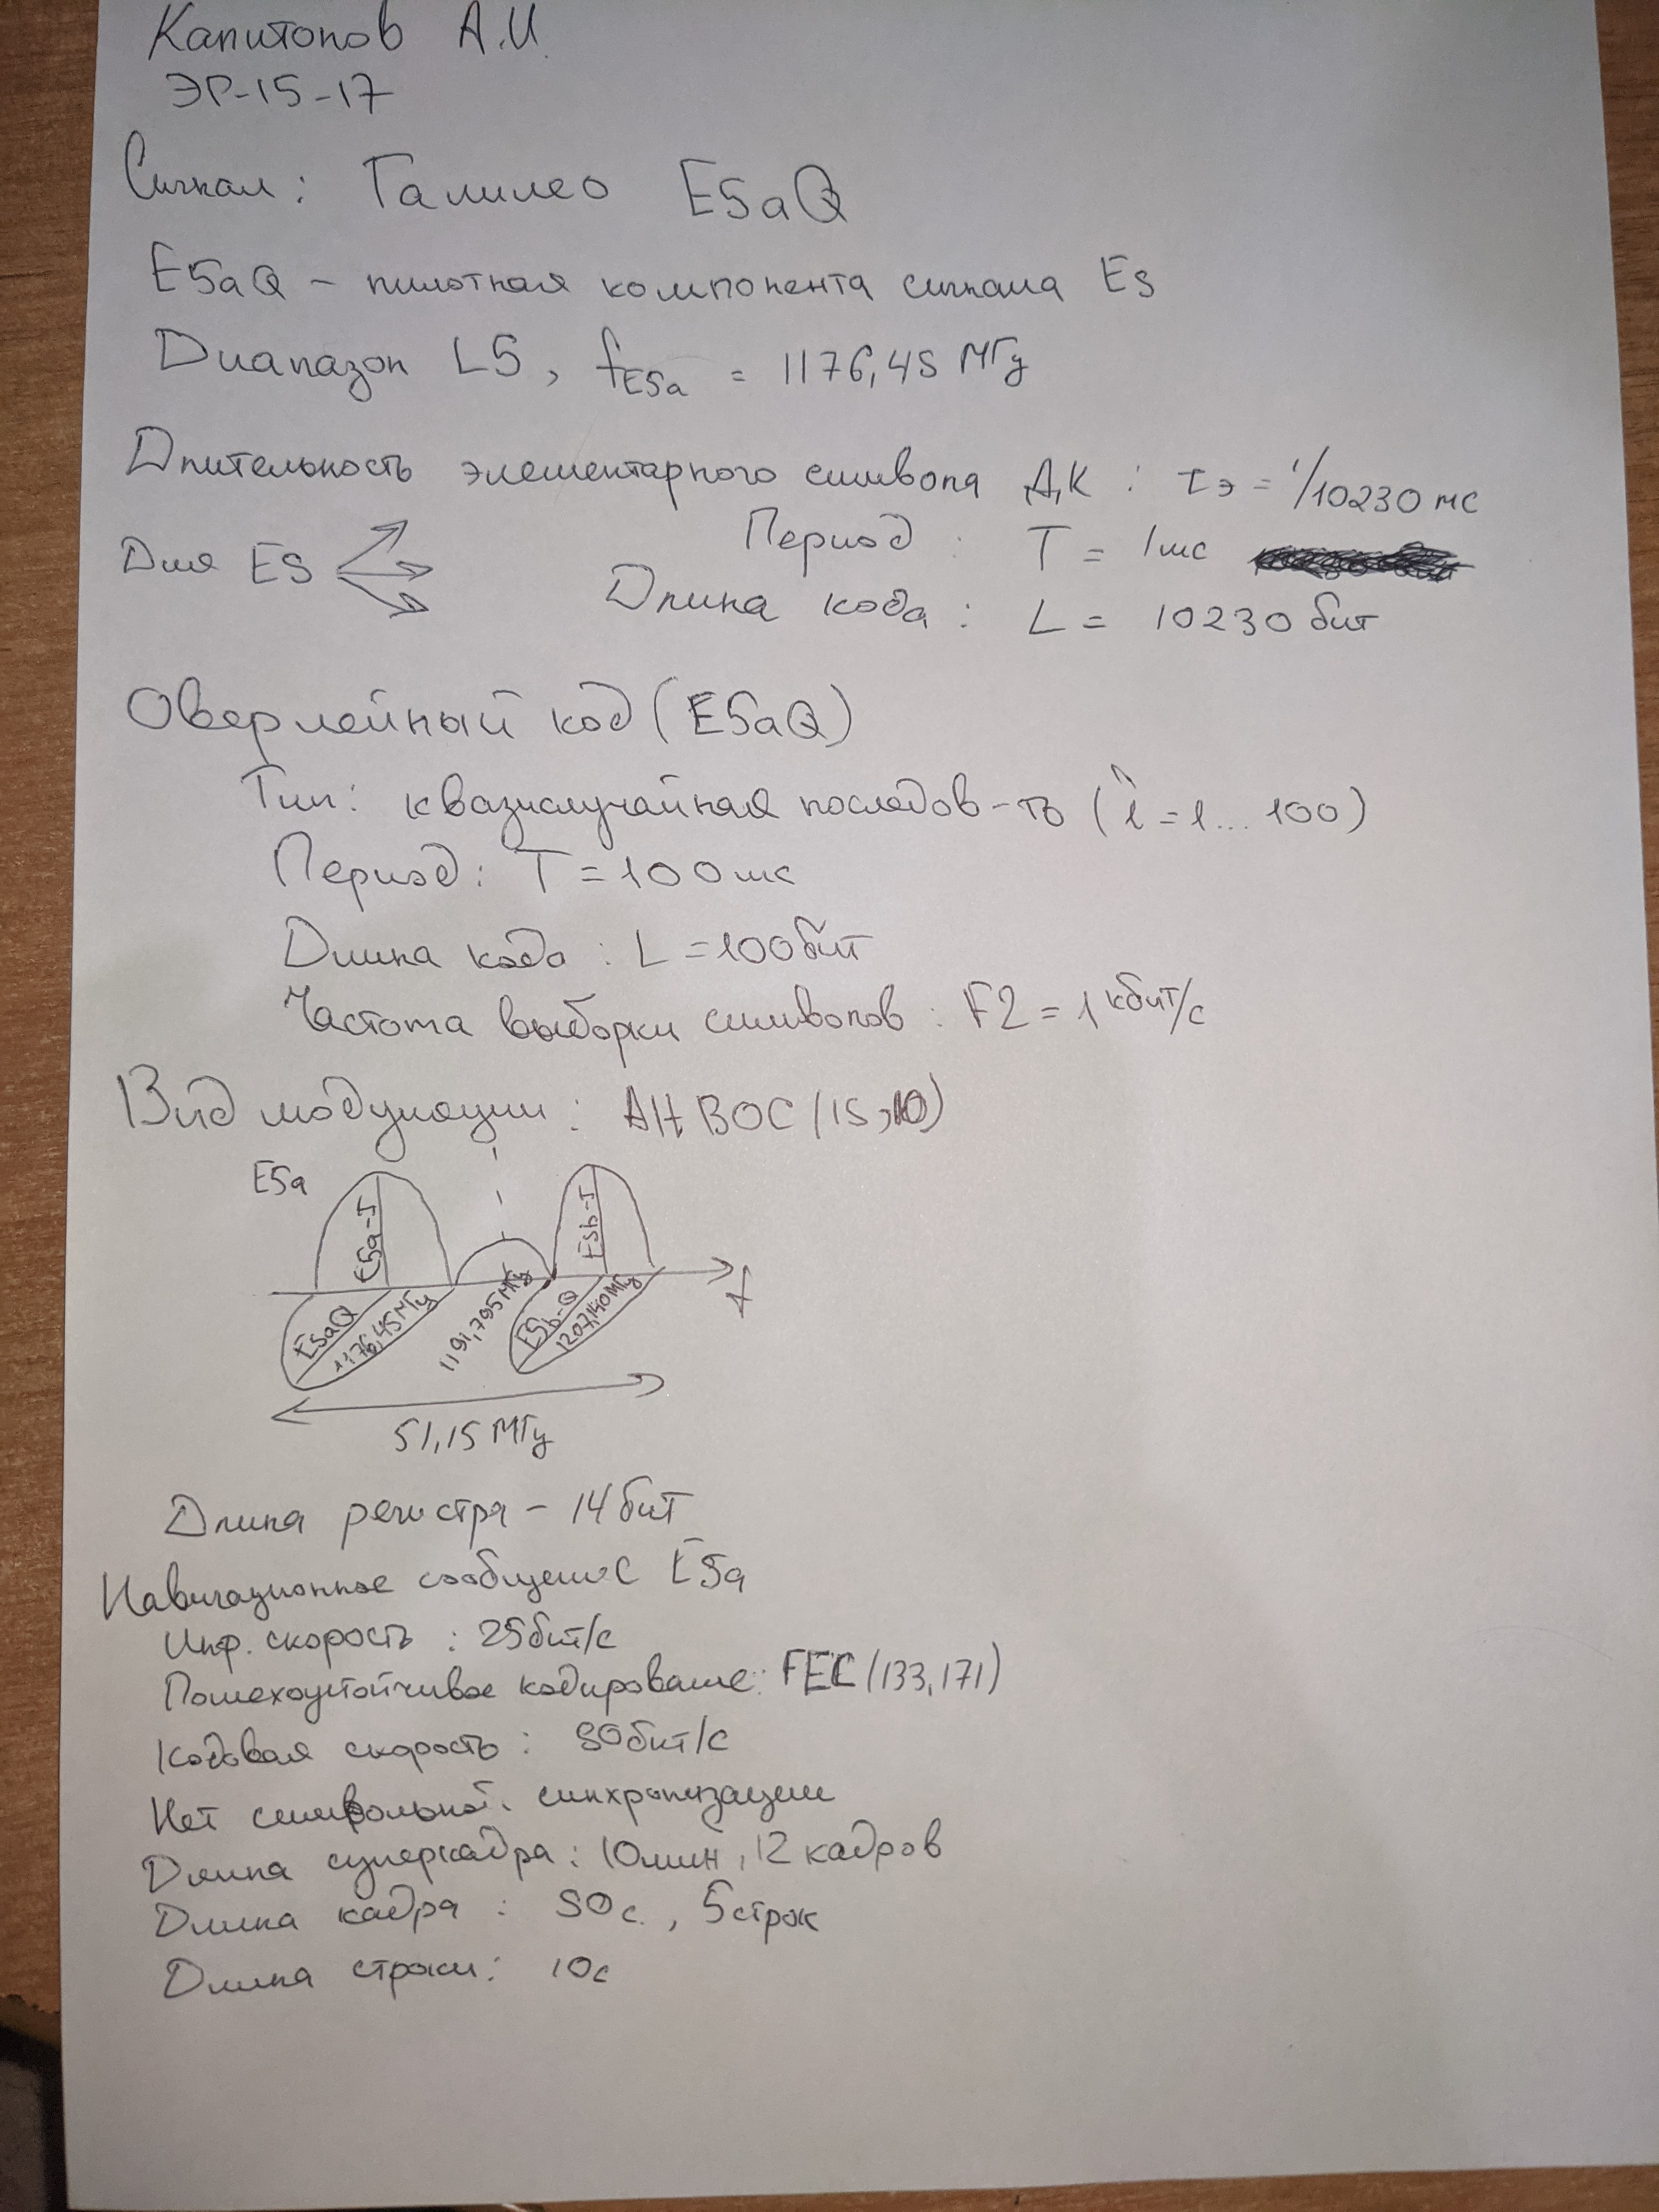 Капитонов А.И.
ЭР-15-17
Сигнал: Галилео E5aQ
E5aQ – пилотная компонента сигнала E5
Диапазон L5, fE5a = 1176,45 МГц
Длительность элементарного символа ДК: τэ = 1/10230 мс
Период: T = 1мс
Для E5
Длина кода: L = 10230 бит
Оверлейный код (E5aQ)
Тип: квазислучайная последов-ть (i = 1...100)
Период: T = 100мс
Длина кода: L = 100бит
Частота выборки символов: F2 = 1 кбит/с
Вид модуляции: AltBOC(15,10)
E5a
E5a-I
E5b-I
f
E5aQ
1176,45МГц
1191,795МГц
E5b-Q
1207,140МГц
51,15 МГц
Длина регистра – 14 бит
Навигационное сообщение E5a
Инф. скорость: 25бит/с
Помехоустойчивое кодирование: FEC(133,171)
Кодовая скорость: 50бит/с
Нет символьной синхронизации
Длина суперкадра: 10мин, 12 кадров
Длина кадра: 50с., 5строк
Длина строки: 10с